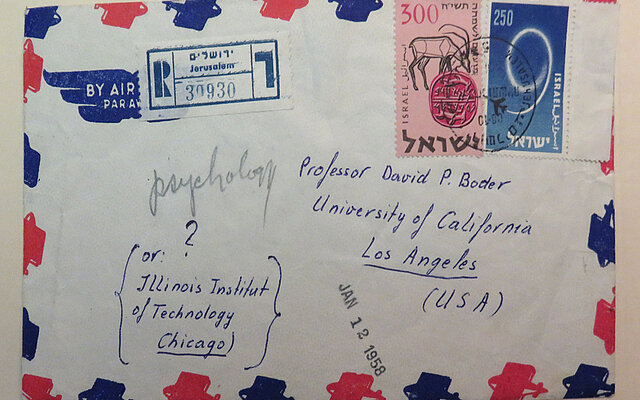 BY AIR
PAR
ירושלים
Jerusalem
R
39930
300
ISRAEL
ישראל
250
ISRAEL
ישראל
psychology
Professor David P. Boder
University of California
Los Angeles
(USA)
?
(or:
Illinois Institut
of Technology
Chicago)
JAN 12 1958